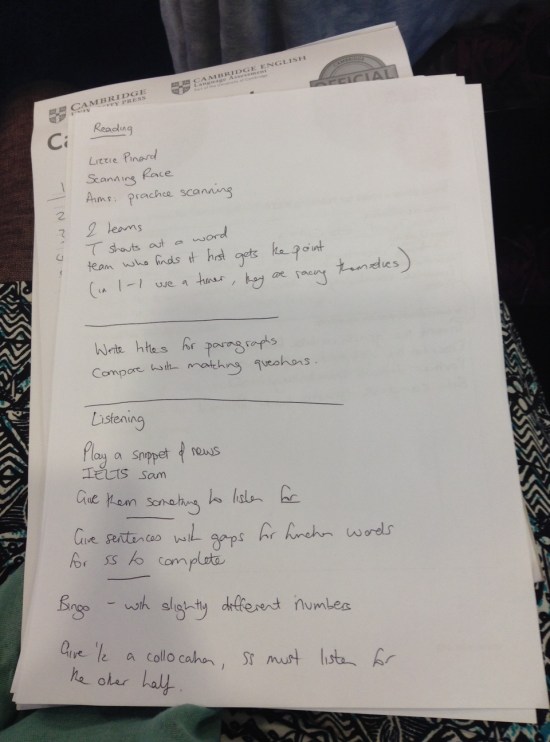 CAMBRIDGE
UNIVERSITY PRESS
CAMBRIDGE ENGLISH
Language Assessment
Part of the University of Cambridge
OFFICIAL
Ca
1
2
3
Reading
Lizzie Pinard
Scanning Race
Aims: practice scanning
2 teams
T shouts out a word
team who finds it first gets the point
(in 1-1 use a timer, they are racing themselves)
Write titles for paragraphs
Compare with matching questions.
Listening
Play a snippet of news
IELTS Sam
Give them something to listen for
Give sentences with gaps for function words
for ss to complete
Bingo - with slightly different numbers
Give ½ a collocation, ss must listen for
the other half.